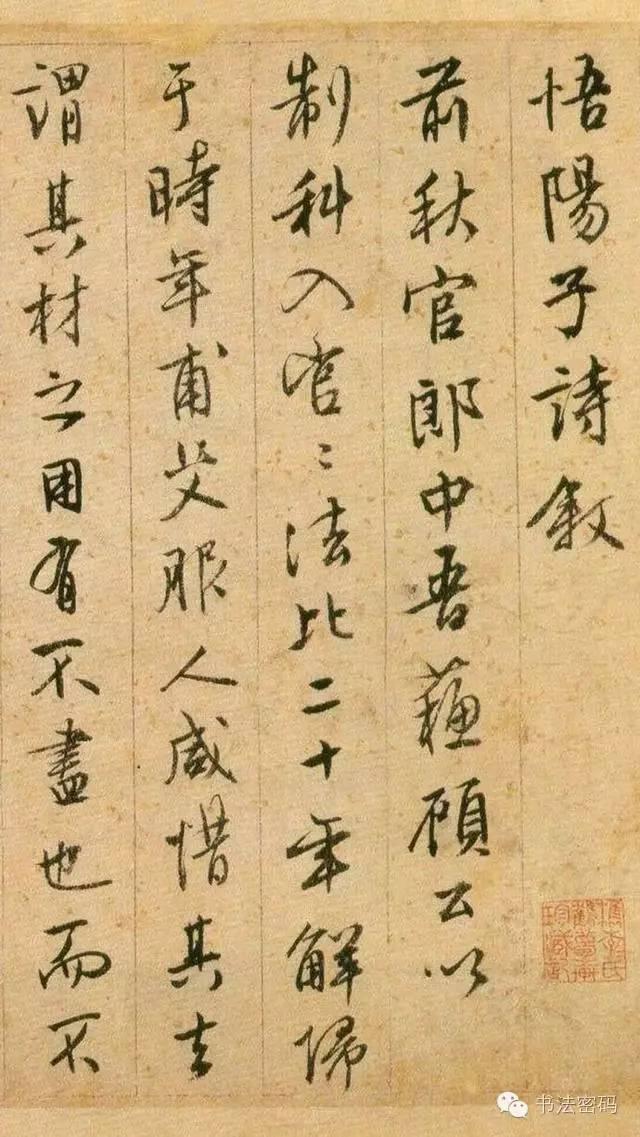 悟陽子詩敘
前秋官郎中吾蘇顧公以
制科入官〻法比二十年解歸
于時年甫艾服人咸惜其去
謂其材之用有不盡也而不
书法密码